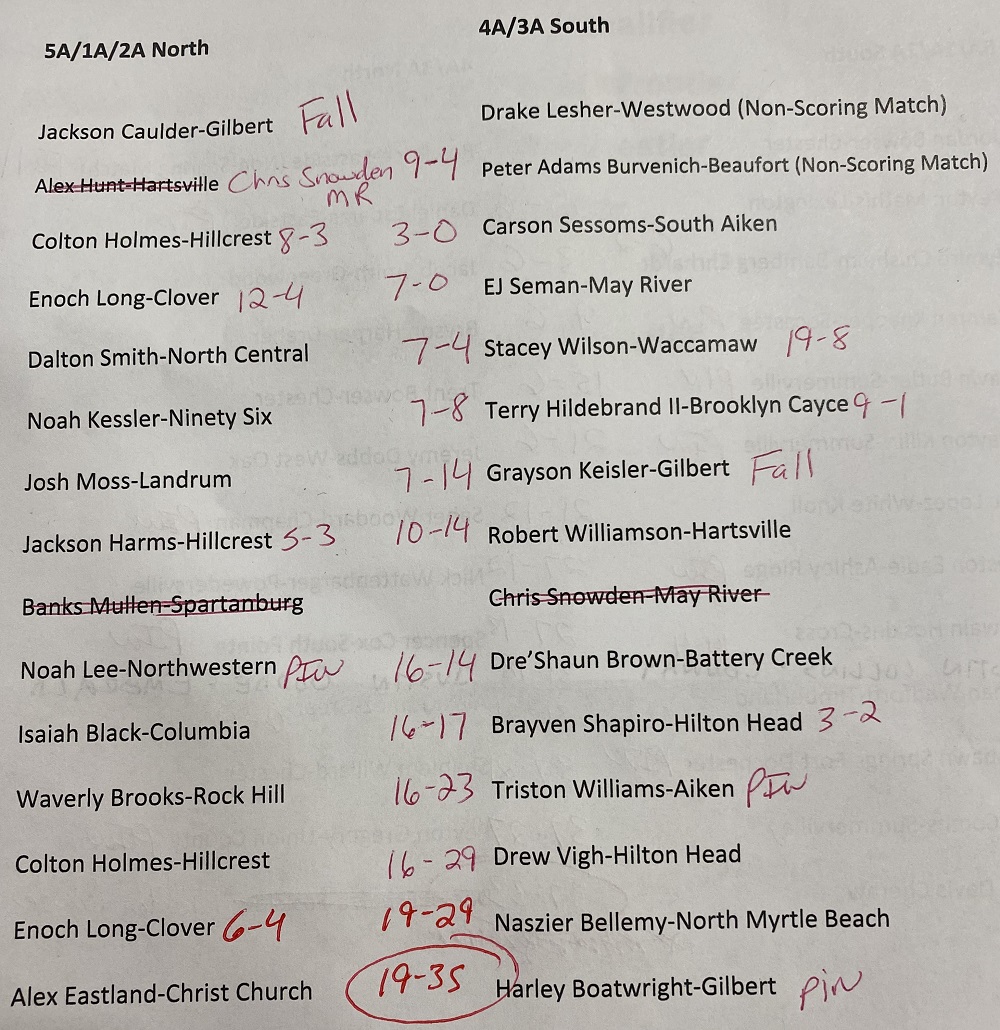 5A/1A/2A North 4A/3A South
Jackson Caulder-Gilbert Fall Drake Lesher-Westwood (Non-Scoring Match)
Alex Hunt-Hartsville Chris Snowden 9-4 Peter Adams Burvenich-Beaufort (Non-Scoring Match)
MR
Colton Holmes-Hillcrest 8-3 3-0 Carson Sessoms-South Aiken
Enoch Long-Clover 12-4 7-0 EJ Seman-May River
Dalton Smith-North Central 7-4 Stacey Wilson-Waccamaw 19-8
Noah Kessler-Ninety Six 7-8 Terry Hildebrand II-Brooklyn Cayce 9-1
Josh Moss-Landrum 7-14 Grayson Keisler-Gilbert Fall
Jackson Harms-Hillcrest 5-3 10-14 Robert Williamson-Hartsville
Banks Mullen-Spartanburg Chris Snowden-May River
Noah Lee-Northwestern PIN 16-14 Dre'Shaun Brown-Battery Creek
Isaiah Black-Columbia 16-17 Brayven Shapiro-Hilton Head 3-2
Waverly Brooks-Rock Hill 16-23 Triston Williams-Aiken PIN
Colton Holmes-Hillcrest 16-29 Drew Vigh-Hilton Head
Enoch Long-Clover 6-4 19-29 Naszier Bellemy-North Myrtle Beach
Alex Eastland-Christ Church 19-35 Harley Boatwright-Gilbert pin